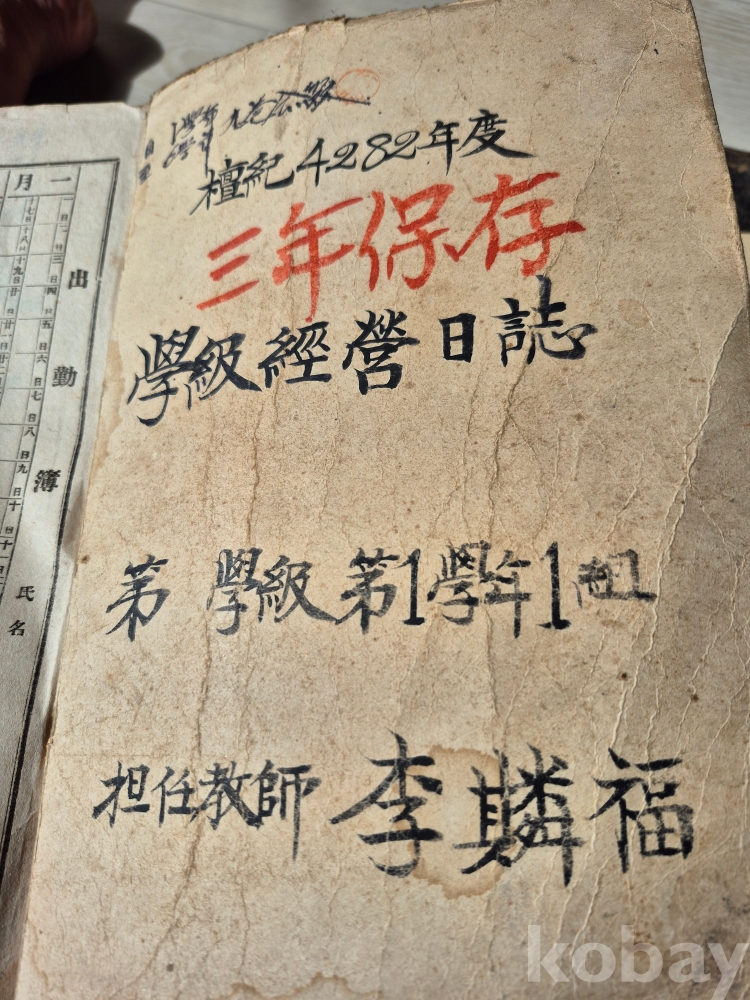 1學年
6學年
檀紀4282年度
三年保存
學級經營日誌
第 學級 第1學年1組
担任教師 李麟福
一月
出勤簿
氏名
kobay